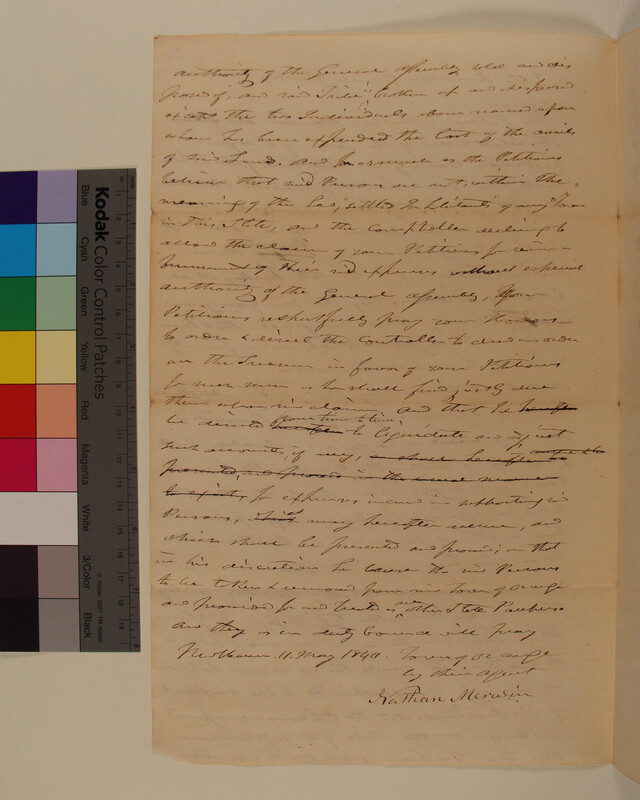 authority of the General Assembly sold and dis
posed of, and said Tribe broken up and dispersed
except the two Individuals above named upon
whom has been expended the Cost of the avails
of said Land. And forasmuch as the Petitioners
believe that said Persons are not, within the
meaning of the Law, settled Inhabitants of any Town
in This State, and the Comptroller declining to
allow the claim of your Petitioners for reim-
bursement of their said expenses without especial
authority of the General Assembly, Your
Petitioners respectfully pray your Honours
to order & direct the Controller to draw an order
on the Treasurer in favor of your Petitioners
for such sum as he shall find justly due
them upon said claim, and that he
be directed from time to time to liquidate and adjust
such accounts, if any, as shall hereafter be
presented, in the usual manner
to exist, for expenses incurred in supporting said
Persons, which may hereafter accrue, and
which shall be presented and proven; or that
in his discretion he cause the said Persons
to be taken & removed from said town of Orange
and provided for and treated as are other State Paupers
And they as in duty bound will pray
New Haven 11. May 1840. Town of Orange
by their Agent
Nathan Merwin
Kodak Color Control Patches
Blue
Cyan
Green
Yellow
Red
Magenta
White
3/Color
Black